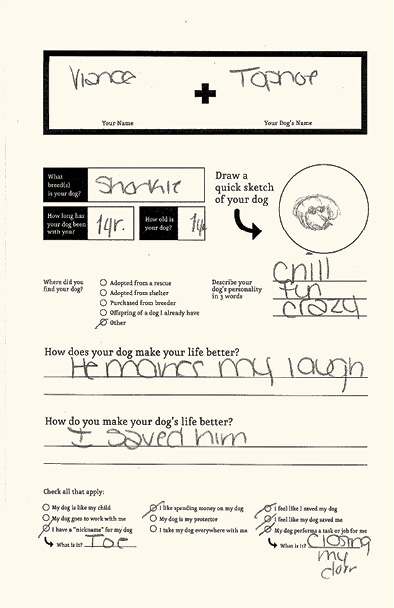 Viance
Topnoe
Your Name
Your Dog's Name
What
breed(s)
is your dog?
Shorkie
Draw a
quick sketch
of your dog
How long has
your dog been
with you?
1yr.
How old is
your dog?
Where did you
find your dog?
Adopted from a rescue
Adopted from shelter
Purchased from breeder
Offspring of a dog I already have
Other
Describe your
dog's personality
in 3 words
chill
fun
crazy
How does your dog make your life better?
He makes my laugh
How do you make your dog's life better?
I saved him
Check all that apply:
My dog is like my child
My dog goes to work with me
I have a "nickname" for my dog
What is it?
Toe
I like spending money on my dog
My dog is my protector
I take my dog everywhere with me
I feel like I saved my dog
I feel like my dog saved me
My dog performs a task or job for me
What is it?
Closing
my
dorr